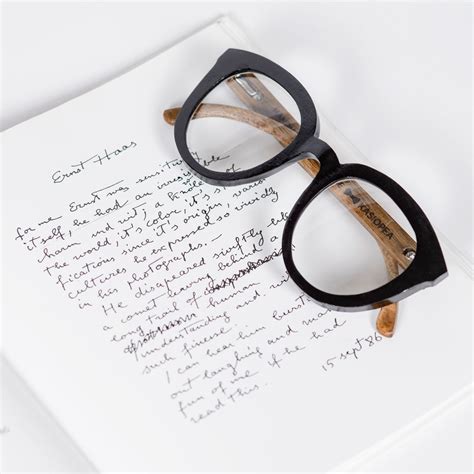 Ernst Haas
for me Ernst was
itself he had an
charm and wit, a of
the world, it's color, it's
fications since it's origin,
cultures he expressed so vividly
in his photographs. —
He disapeared swiftly
a comet leaving behind a
long trail of
human
understanding and, with
such finesse.
I can hear him
out laughing and
fun of me if he had
read this.
15 sept 86
KASIOPEA